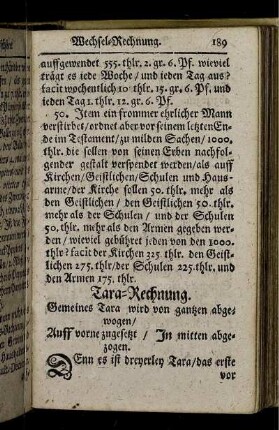 Wechsel-Rechnung. 189
auffgewendet 555. thlr. 2. gr. 6. Pf. wieviel
trägt es jede Woche / und jeden Tag aus?
facit wochentlich 10 thlr. 15. gr. 6. Pf. und
jeden Tag 1. thlr. 12. gr. 6. Pf.
50. Item ein frommer ehrlicher Mann
verstirbet / ordnet aber vor seinem letzten En-
de im Testament / zu milden Sachen / 1000.
thlr. die sollen von seinen Erben nachfol-
gender gestalt verspendet werden / als auff
Kirchen / Geistlichen / Schulen und Haus-
arme / der Kirche sollen 50. thlr. mehr als
den Geistlichen / den Geistlichen 50. thlr.
mehr als der Schulen / und der Schulen
50. thlr. mehr als den Armen gegeben wer-
den / wieviel gebühret jeden von den 1000.
thlr? facit der Kirchen 325 thlr. den Geist-
lichen 275. thlr / der Schulen 225. thlr. und
den Armen 175. thlr.
Tara-Rechnung.
Gemeines Tara wird von gantzen abge-
wogen /
Auff vorne zugesetzt / In mitten abge-
zogen.
Denn es ist dreyerley Tara / das erste
vor